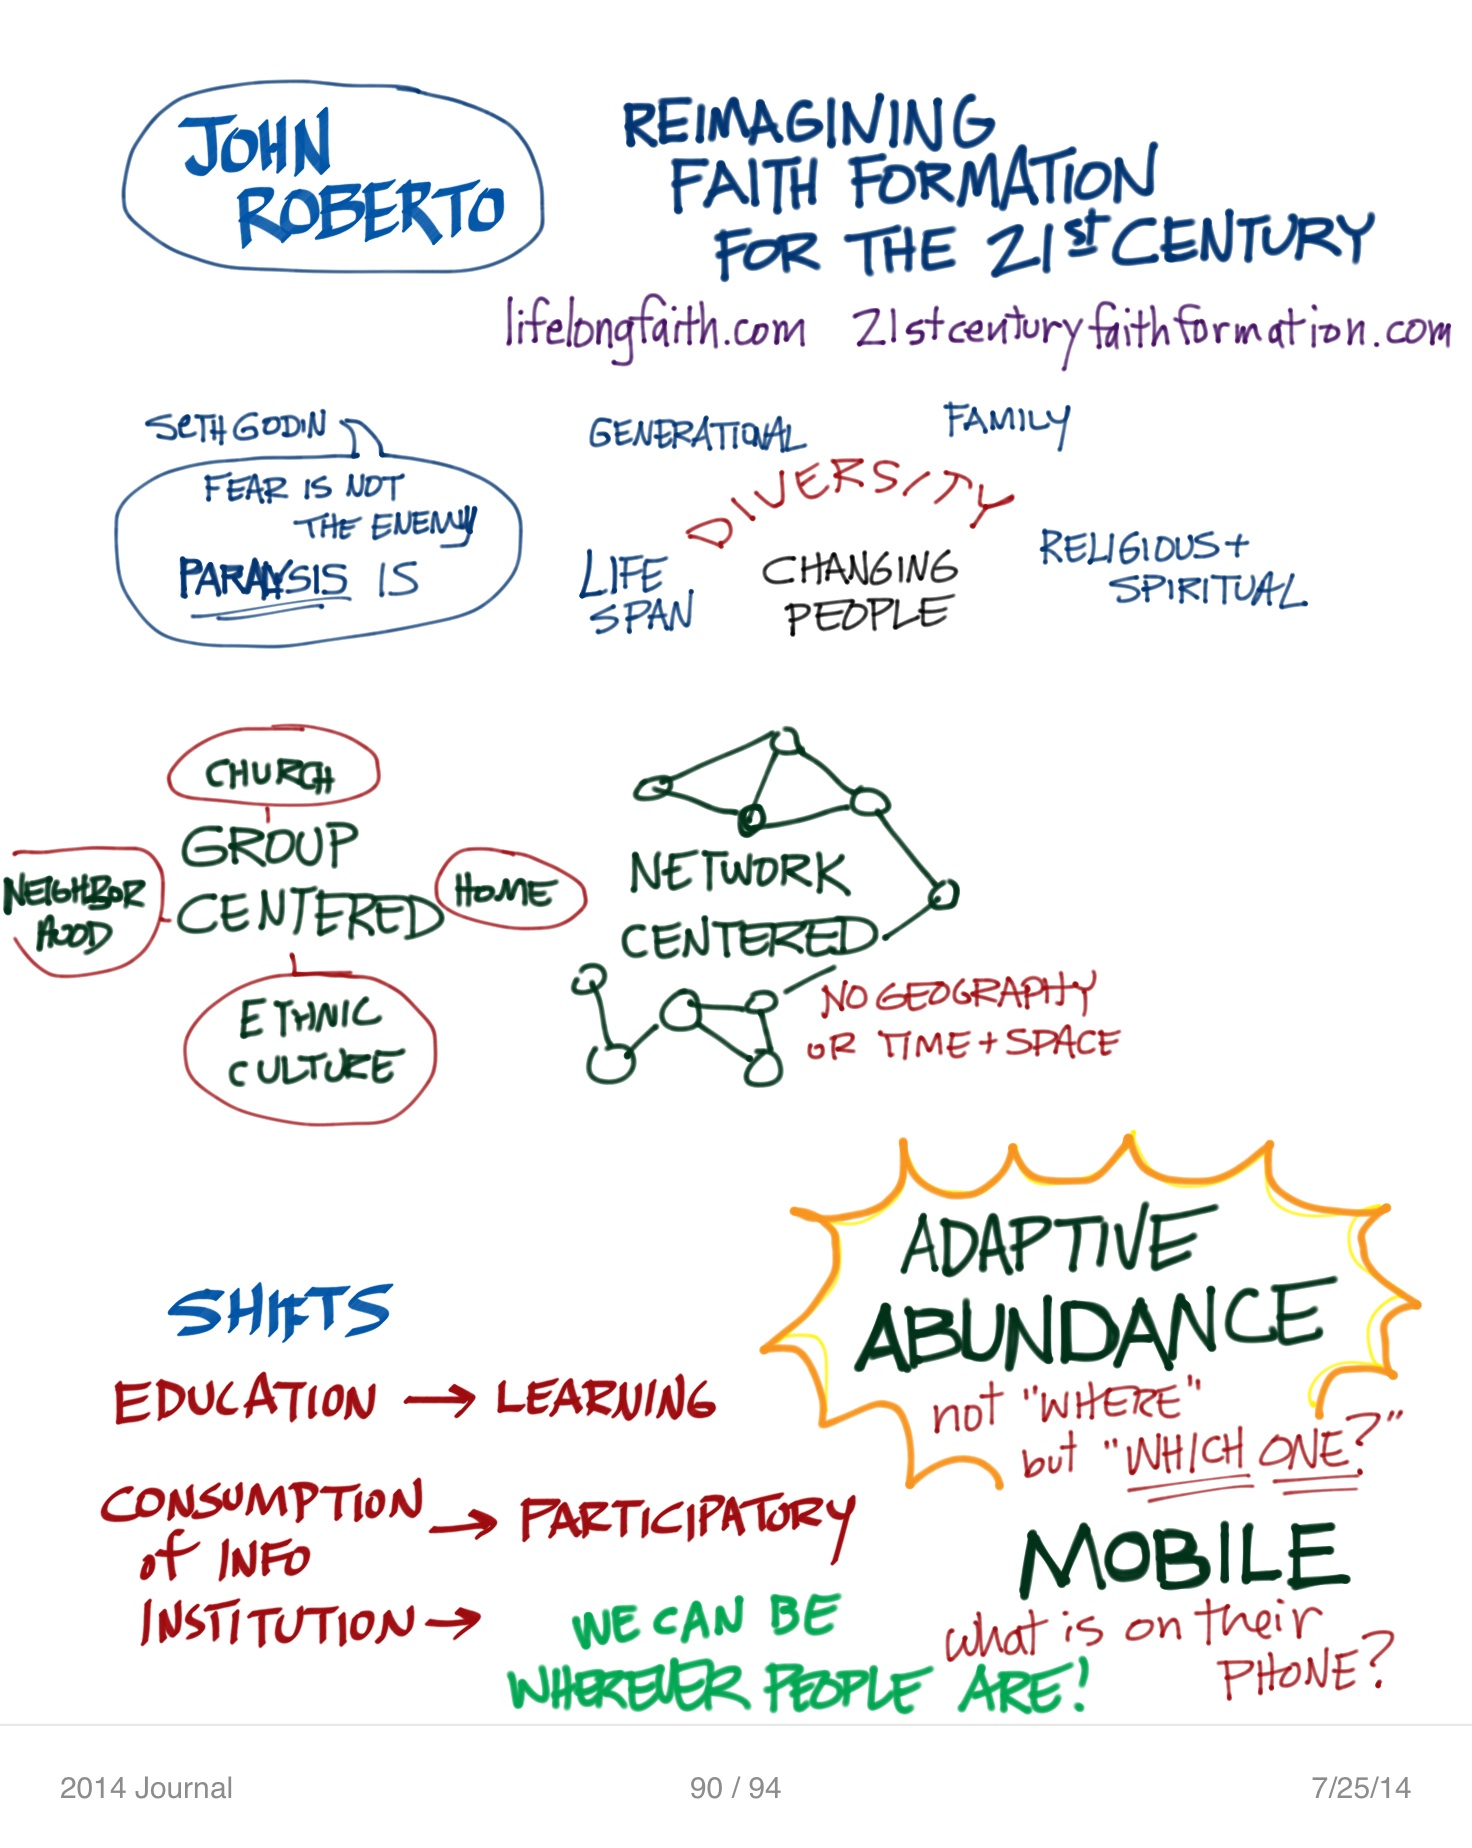 JOHN
ROBERTO
REIMAGINING
FAITH FORMATION
FOR THE 21st CENTURY
lifelongfaith.com 21stcenturyfaithformation.com
SETH GODIN
FEAR IS NOT
THE ENEMY
PARALYSIS IS
GENERATIONAL
FAMILY
DIVERSITY
LIFE
SPAN
CHANGING
PEOPLE
RELIGIOUS +
SPIRITUAL
CHURCH
GROUP
CENTERED
NEIGHBOR
HOOD
HOME
ETHNIC
CULTURE
NETWORK
CENTERED
NO GEOGRAPHY
OR TIME + SPACE
ADAPTIVE
ABUNDANCE
not "WHERE"
but "WHICH ONE?"
SHIFTS
EDUCATION → LEARNING
CONSUMPTION
of INFO → PARTICIPATORY
INSTITUTION →
WE CAN BE
WHEREVER PEOPLE ARE!
MOBILE
what is on their
PHONE?
2014 Journal
90 / 94
7/25/14